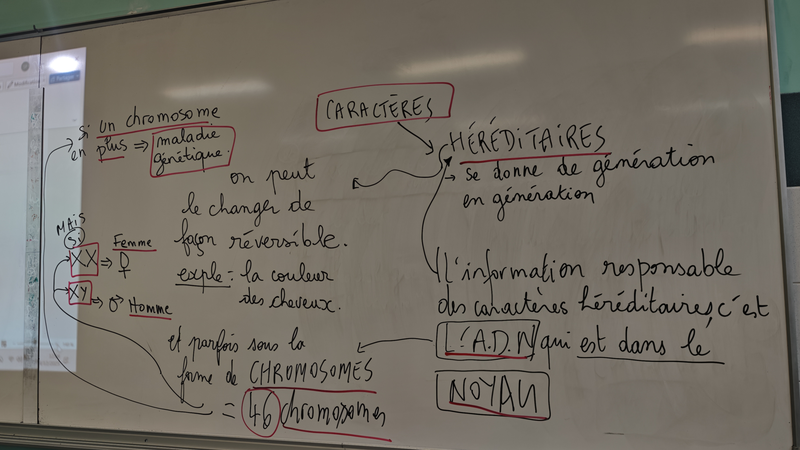 CARACTÈRES
HÉRÉDITAIRES
→ se donne de génération
en génération
si un chromosome
en plus ⇒ maladie
génétique.
on peut
le changer de
façon réversible.
exple = la couleur
des cheveux.
MAIS
si
XX ⇒ ♀ Femme
XY ⇒ ♂ Homme
L'information responsable
des caractères héréditaires, c'est
L'A.D.N qui est dans le
NOYAU
et parfois sous la
forme de CHROMOSOMES
= 46 chromosomes